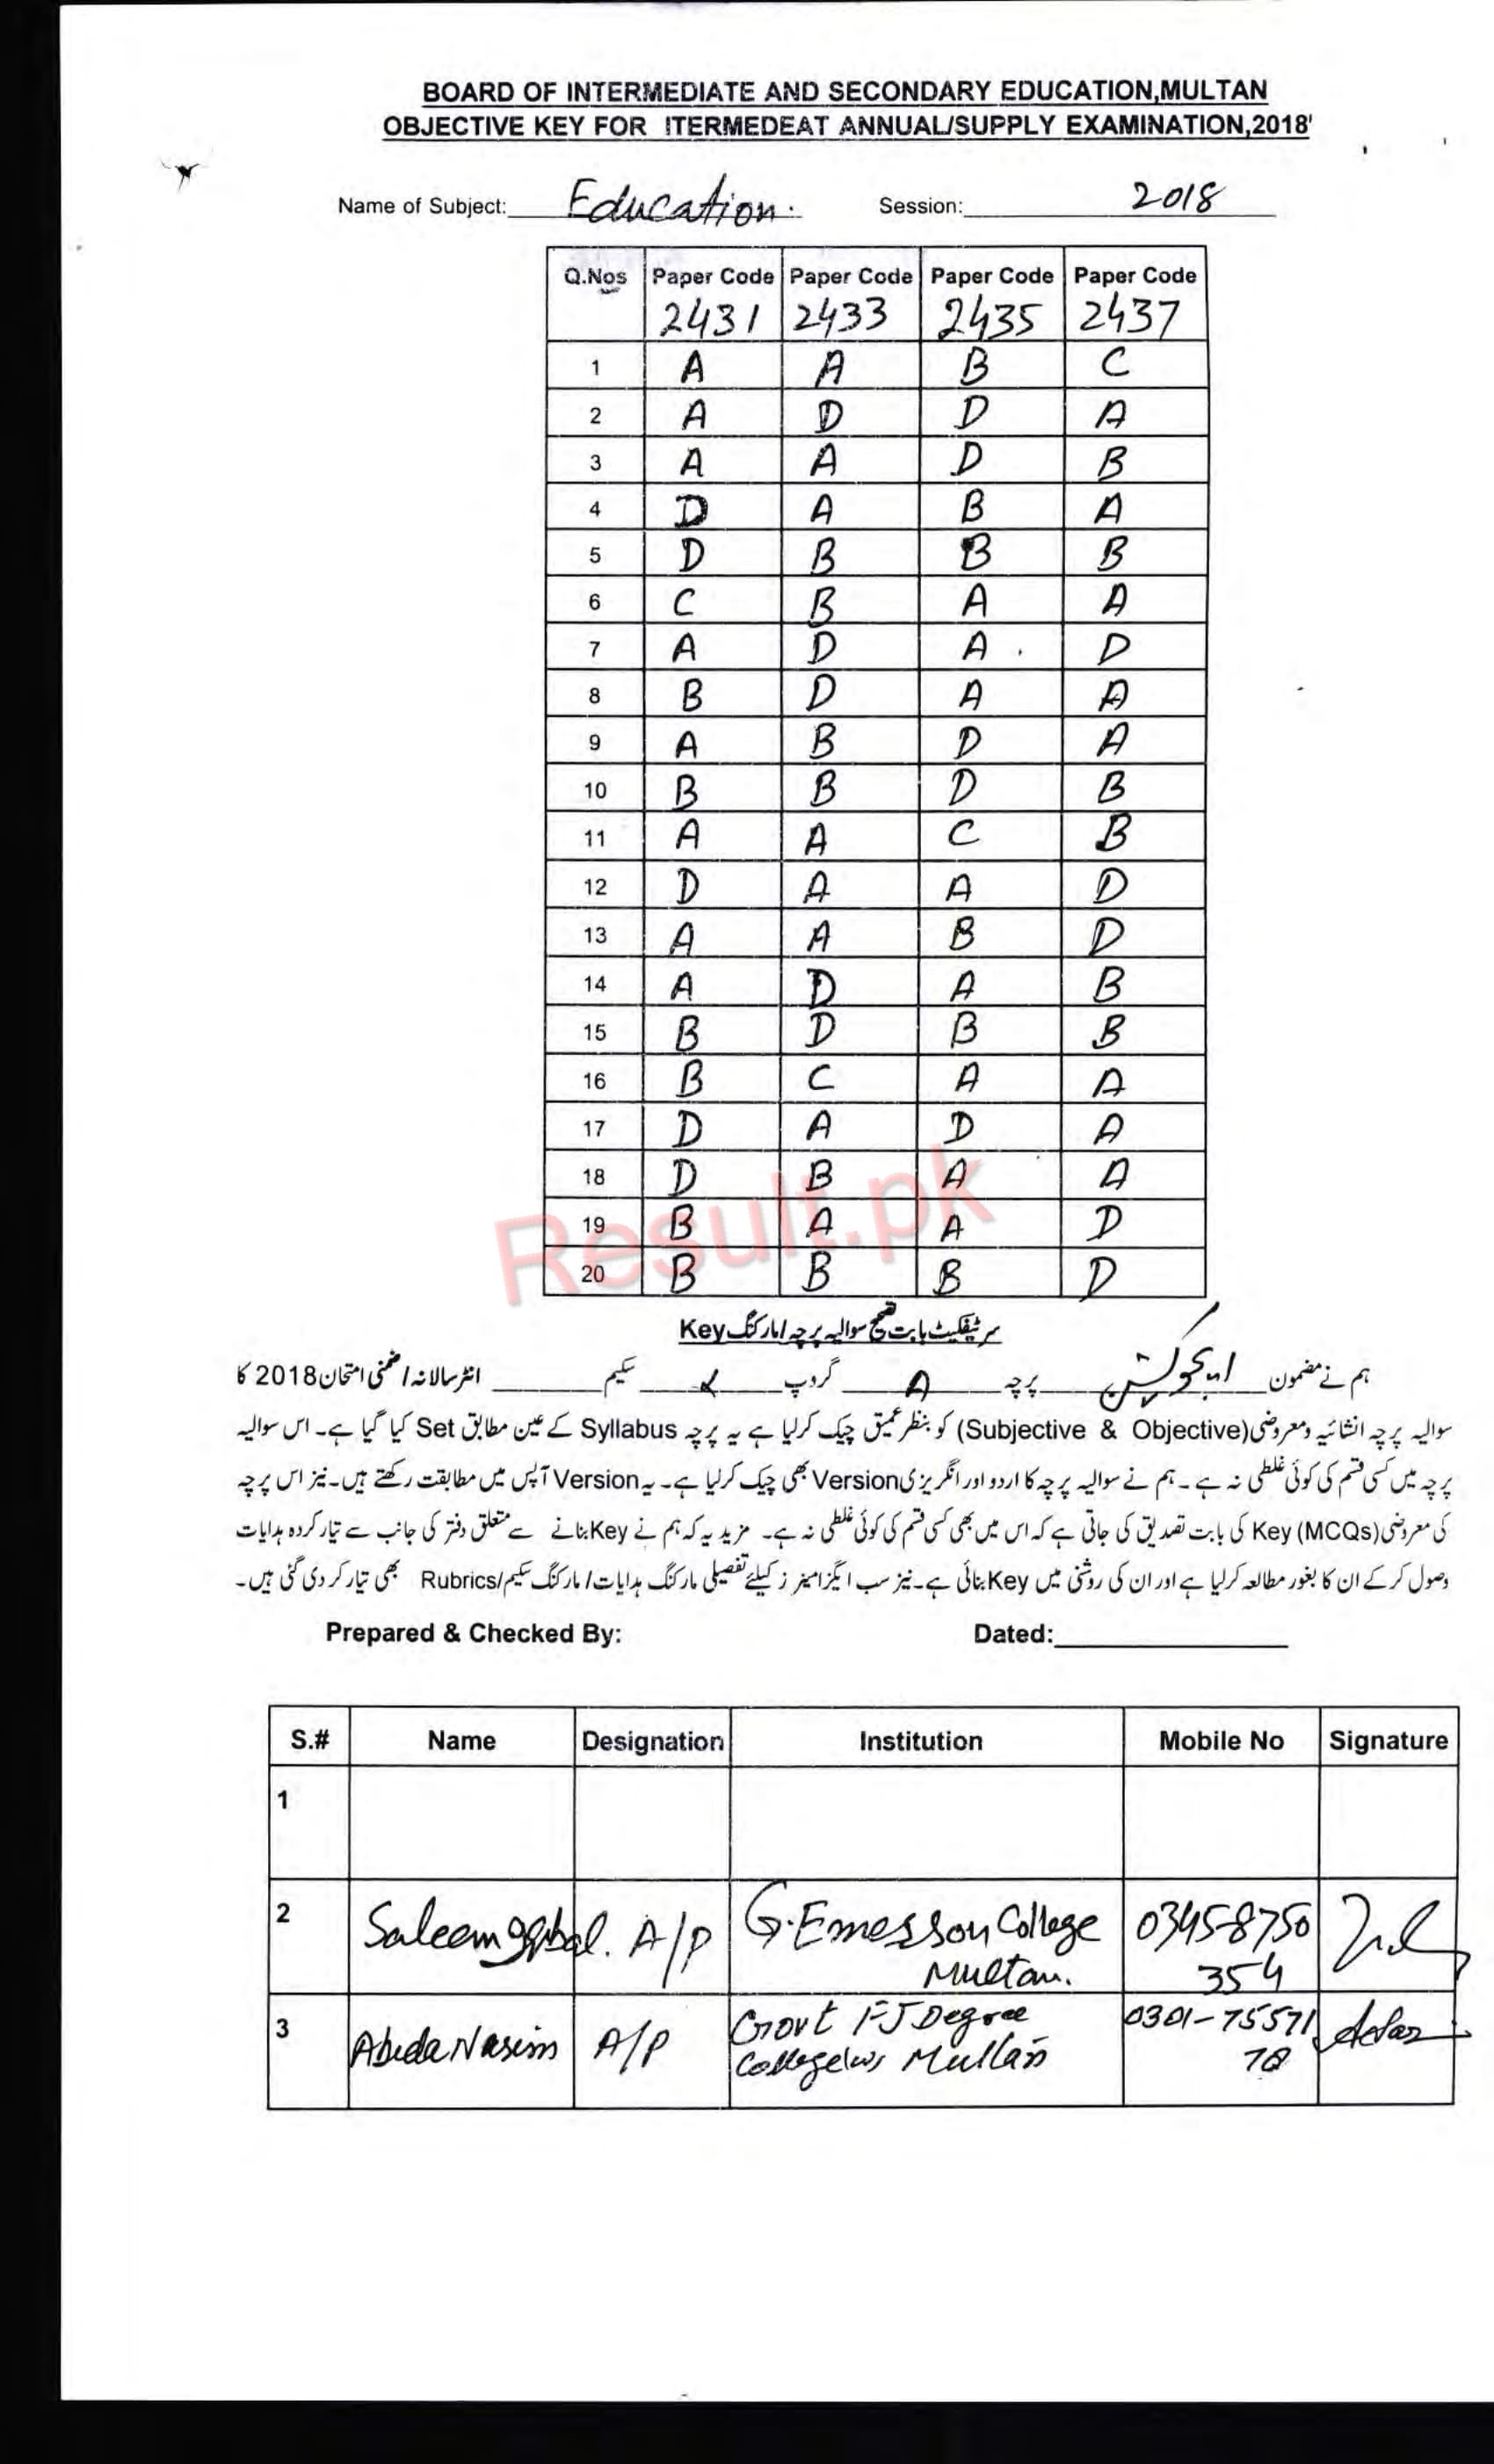 BOARD OF INTERMEDIATE AND SECONDARY EDUCATION,MULTAN
OBJECTIVE KEY FOR ITERMEDEAT ANNUAL/SUPPLY EXAMINATION,2018'
Name of Subject: Education. Session: 2018
Q.Nos Paper Code Paper Code Paper Code Paper Code
2431 2433 2435 2437
1 A A B C
2 A D D A
3 A A D B
4 D A B A
5 D B B B
6 C B A A
7 A D A D
8 B D A A
9 A B D A
10 B B D B
11 A A C B
12 D A A D
13 A A B D
14 A D A B
15 B D B B
16 B C A A
17 D A D A
18 D B A A
19 B A A D
20 B B B D
Result.pk
سرٹیفکیٹ بابت تصحیح سوالیہ پرچہ/مارکنگ Key
ہم نے مضمون ایجوکیشن پرچہ A گروپ سکیم انٹر سالانہ/ضمنی امتحان 2018 کا
سوالیہ پرچہ انشائیہ ومعروضی (Subjective & Objective) کو بنظر عمیق چیک کرلیا ہے یہ پرچہ Syllabus کے عین مطابق Set کیا گیا ہے۔ اس سوالیہ
پرچہ میں کسی قسم کی کوئی غلطی نہ ہے۔ ہم نے سوالیہ پرچہ کا اردو اور انگریزی Version بھی چیک کرلیا ہے۔ یہ Version آپس میں مطابقت رکھتے ہیں۔ نیز اس پرچہ
کی معروضی (MCQs) Key کی بابت تصدیق کی جاتی ہے کہ اس میں بھی کسی قسم کی کوئی غلطی نہ ہے۔ مزید یہ کہ ہم نے Key بنانے سے متعلق دفتر کی جانب سے تیار کردہ ہدایات
وصول کرکے ان کا بغور مطالعہ کرلیا ہے اور ان کی روشنی میں Key بنائی ہے۔ نیز سب ایگزامینرز کیلئے تفصیلی مارکنگ ہدایات/مارکنگ سکیم/Rubrics بھی تیار کر دی گئی ہیں۔
Prepared & Checked By: Dated:
S.# Name Designation Institution Mobile No Signature
1
2 Saleem Iqbal. A/P G. Emesson College 03458750
Multan. 354
3 Abida Nasim A/P Govt FJ Degree 0301-75571
College (w) Multan 78